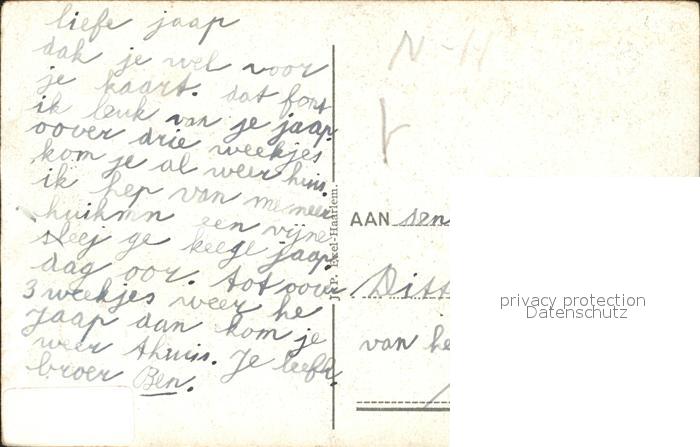 liefe jaap
dak je wel voor
je kaart. dat font
ik leuk van je jaap.
oover drie weekjes
kom je al weer huis.
ik hep van meneer
huikmn een vijne
sleej ge keege jaap.
dag oor. tot oover
3 weekjes weer he
jaap dan kom je
weer thuis. Je leefd.
broer Ben.
N-11
J.P. Exel-Haarlem.
AAN
Ditt
van he
privacy protection
Datenschutz